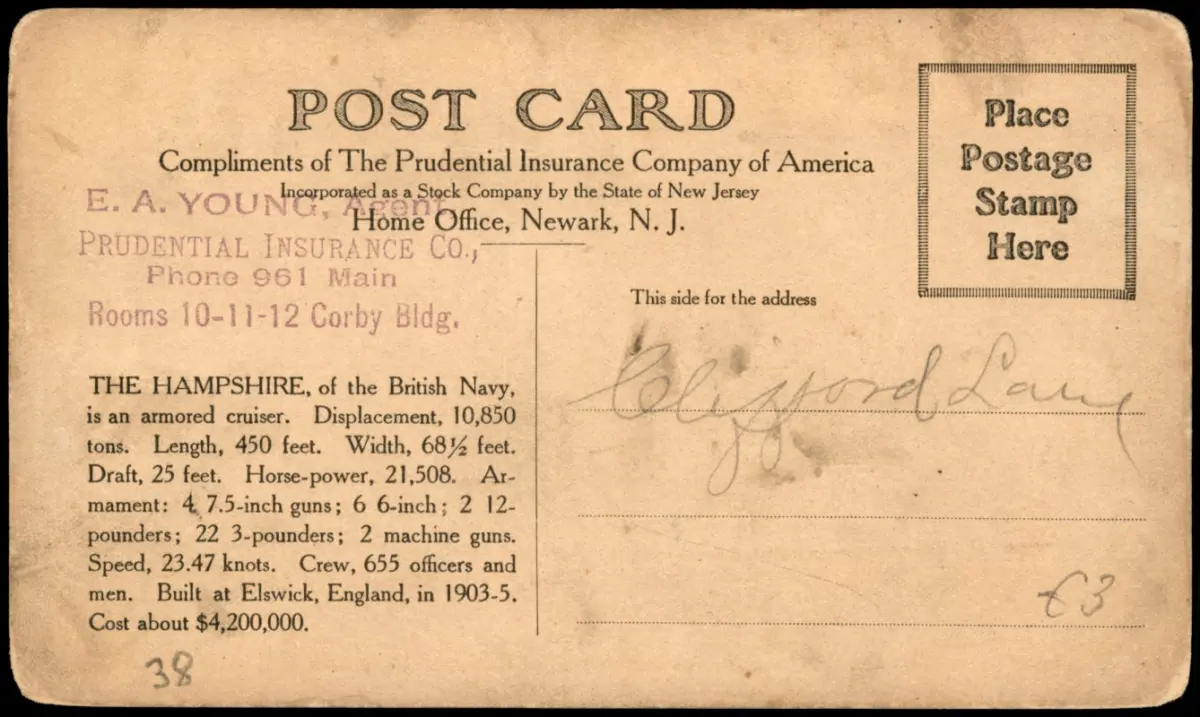 POST CARD
Compliments of The Prudential Insurance Company of America
Incorporated as a Stock Company by the State of New Jersey
Home Office, Newark, N. J.
E. A. YOUNG, Agent
PRUDENTIAL INSURANCE CO.,
Phone 961 Main
Rooms 10-11-12 Corby Bldg.
Place
Postage
Stamp
Here
This side for the address
THE HAMPSHIRE, of the British Navy,
is an armored cruiser. Displacement, 10,850
tons. Length, 450 feet. Width, 68½ feet.
Draft, 25 feet. Horse-power, 21,508. Ar-
mament: 4 7.5-inch guns; 6 6-inch; 2 12-
pounders; 22 3-pounders; 2 machine guns.
Speed, 23.47 knots. Crew, 655 officers and
men. Built at Elswick, England, in 1903-5.
Cost about $4,200,000.
Clifford Lane
€3
38